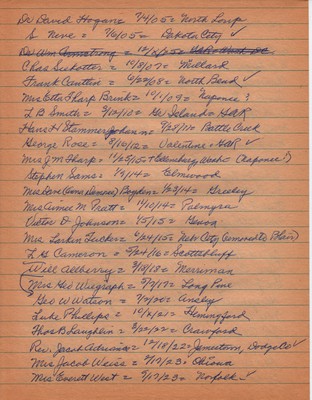 Dr David Hogan = 7/4/05 = North Loup
S. Neve = 7/6/05 = Dakota City ✓
Dr Wm Armstrong = 12/ /05 =
Chas Sickotter = 10/8/07 = Millard
Frank Cantlin = 6/22/08 = North Bend ✓
Mrs Etta Sharp Brink = 10/1/09 = Naponee ?
L B Smith = 2/12/10 = Gr Island = GAR
Hans H Stammerjohan = 9/28/11 = Battle Creek
George Rose = 8/10/12 = Valentine = GAR ✓
Mrs J M Sharp = 1/25/15 + (Naponee ?)
Stephen Sams = 1/9/14 = Elmwood
Mrs (Cora ) Boydson = 2/23/14 = Greeley
Mrs Aimee M. Pratt = 9/10/14 = Palmyra
Victor D Johnson = 1/5/15 = Genoa
Mrs Larkin Tucker = 6/24/15 = Nebr City (removed to Blair)
L G Cameron = 5/24/16 = Scottsbluff
Will Allberry = 3/19/18 = Merriman
Mrs Geo Wiegraph = 5/9/17 = Long Pine
Geo W Watson = 7/9/20 = Ansley
Luke Phillips = 10/2/21 = Hemingford
Thos B Laughlin = 2/22/22 = Crawford
Rev. Jacob Adriance = 12/18/22 = Jamestown, Dodge Co ✓
Mrs Jacob Weiss = 2/17/23 = Ohiowa
Mrs Everett West = 2/17/23 = Norfolk ✓